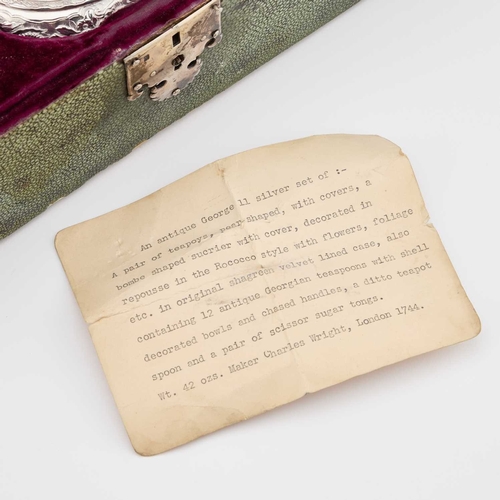 An antique George ll silver set of :-
A pair of teapoys, pear-shaped, with covers, a
bombe shaped sucrier with cover, decorated in
repousse in the Rococco style with flowers, foliage
etc. in original shagreen velvet lined case, also
containing 12 antique Georgian teaspoons with shell
decorated bowls and chased handles, a ditto teapot
spoon and a pair of scissor sugar tongs.
Wt. 42 ozs. Maker Charles Wright, London 1744.